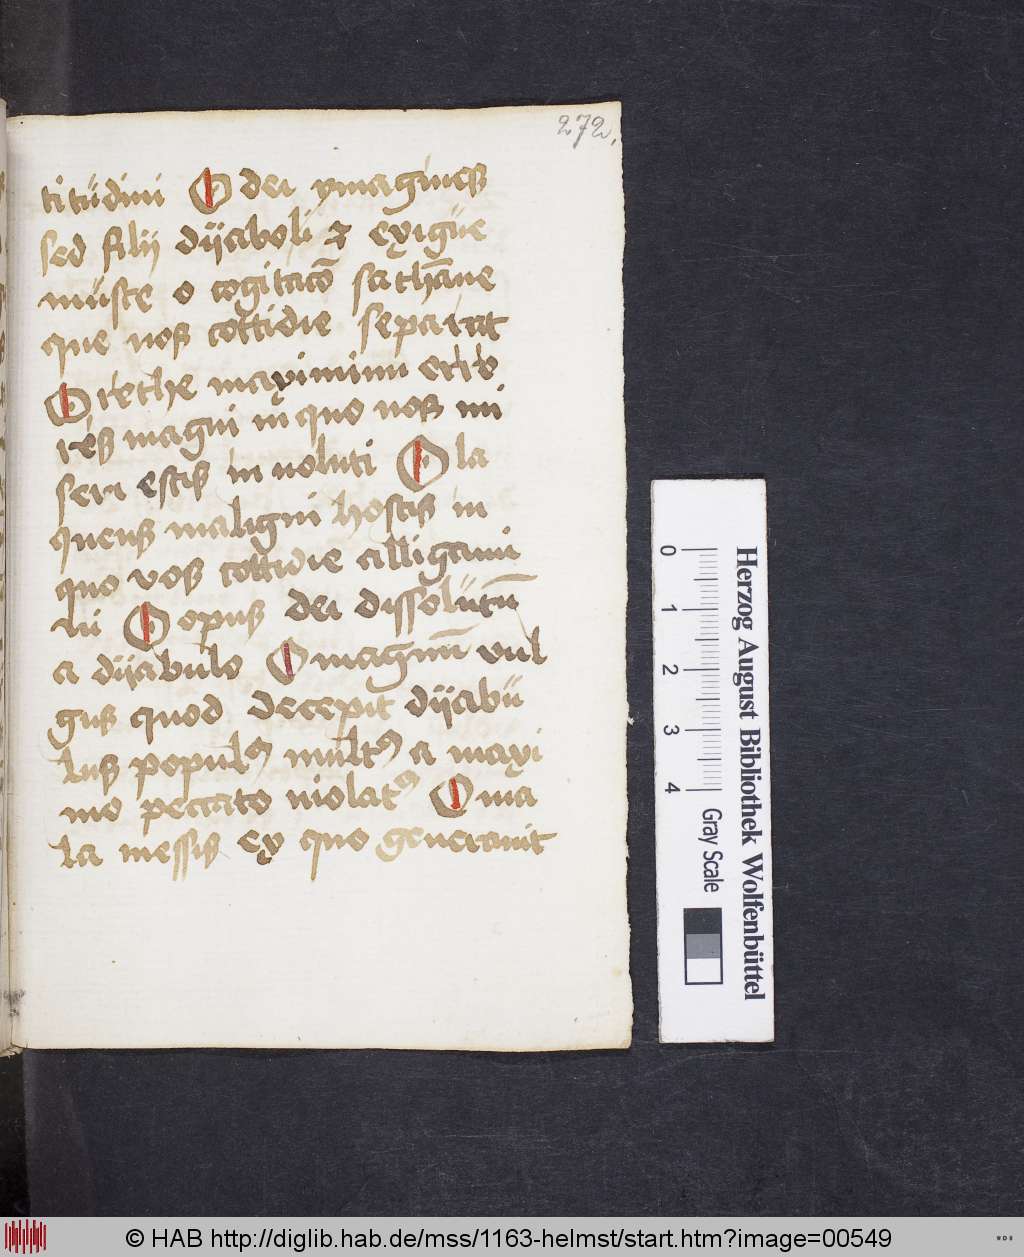 272,
titudini O dei ymagines
sed filij dijaboli & exigue
muste o cogitaco̅ satha̅ne
que nos cottidie separat
O rethe maximimi erro
res magni in quo nos mi
seri estis in voluti O la
queus maligni hostis in
quo vos cottidie alligami
ni O opus dei dissolutu̅
a dijabulo O magnu̅ vul
gus quod decepit dijabu
lus populꝰ multꝰ a maxi
mo peccato violatꝰ O ma
la messis ex quo generauit
Herzog August Bibliothek Wolfenbüttel
0 1 2 3 4 Gray Scale
© HAB http://diglib.hab.de/mss/1163-helmst/start.htm?image=00549